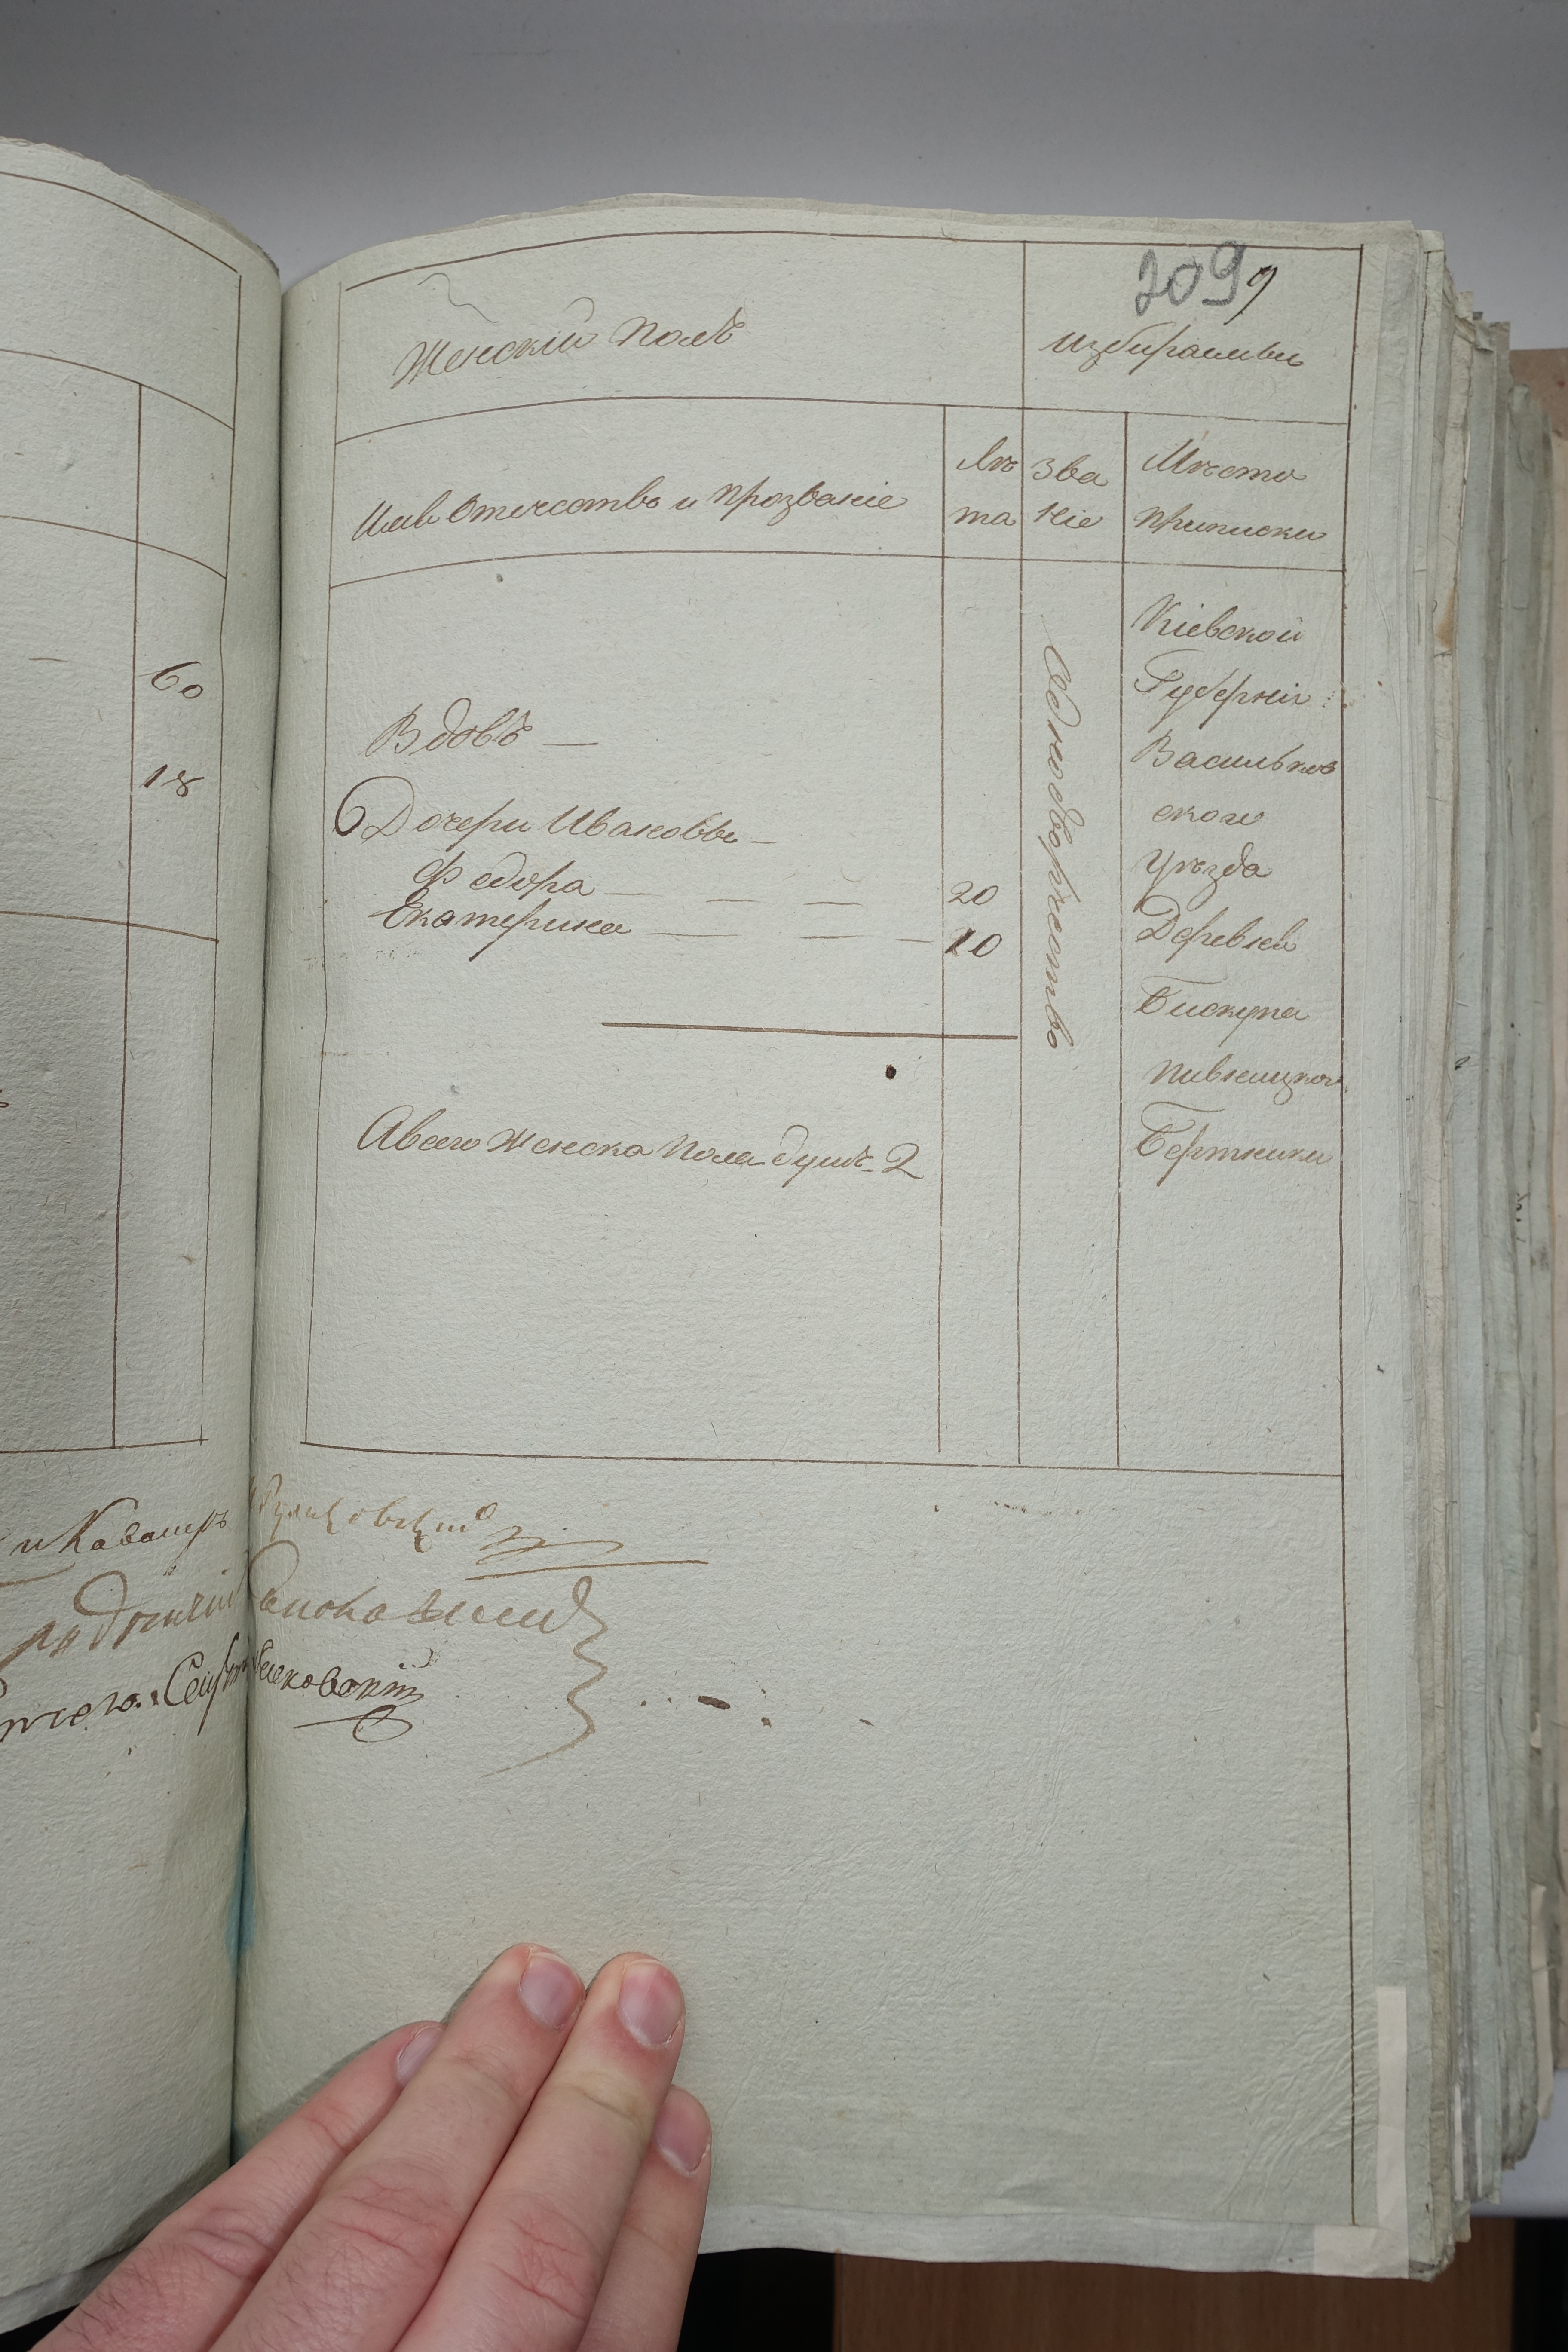 2099
Женскій Полъ
Избираемы
Имя Отечество и Прозваніе
Лѣ
та
Зва
ніе
Мѣсто
приписки
60
18
Вдовъ —
Дочери Ивановы —
Федора — — — 20
Екатерина — — — 10
Однодворчество
Кіевской
Губерніи
Васильков
ского
Уѣзда
Деревня
Бискупа
Пивницкого
Бертники
А всего женска пола душъ 2
и Кавалеръ